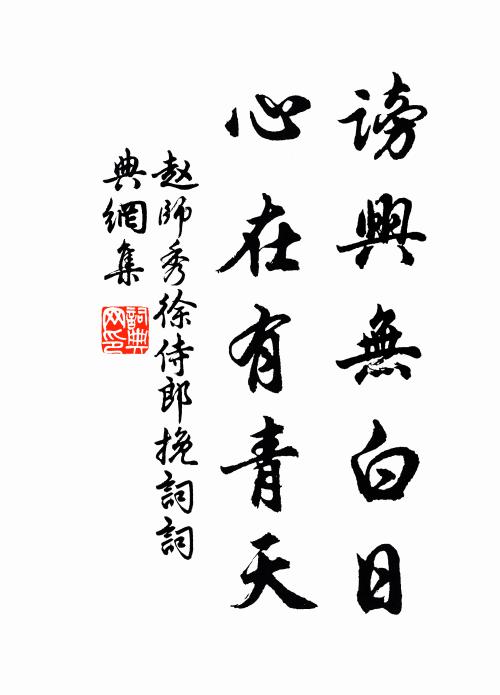 謗興無白日
心在有青天
赵師秀徐侍郎挽詞詞
典網集
詞典网印